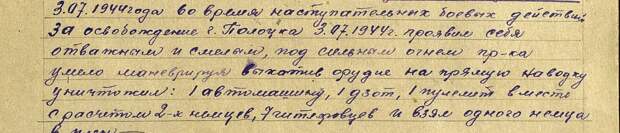 3.07.1944 года во время наступательных боевых действий
за освобождение г. Полоцка 3.07.1944г. проявил себя
отважным и смелым, под сильным огнем пр-ка
умело маневрируя выкатив орудие на прямую наводку
уничтожил: 1 автомашину, 1 дзот, 1 пулемет вместе
с расчетом 2-х немцев, 7 гитлеровцев и взял одного немца
в